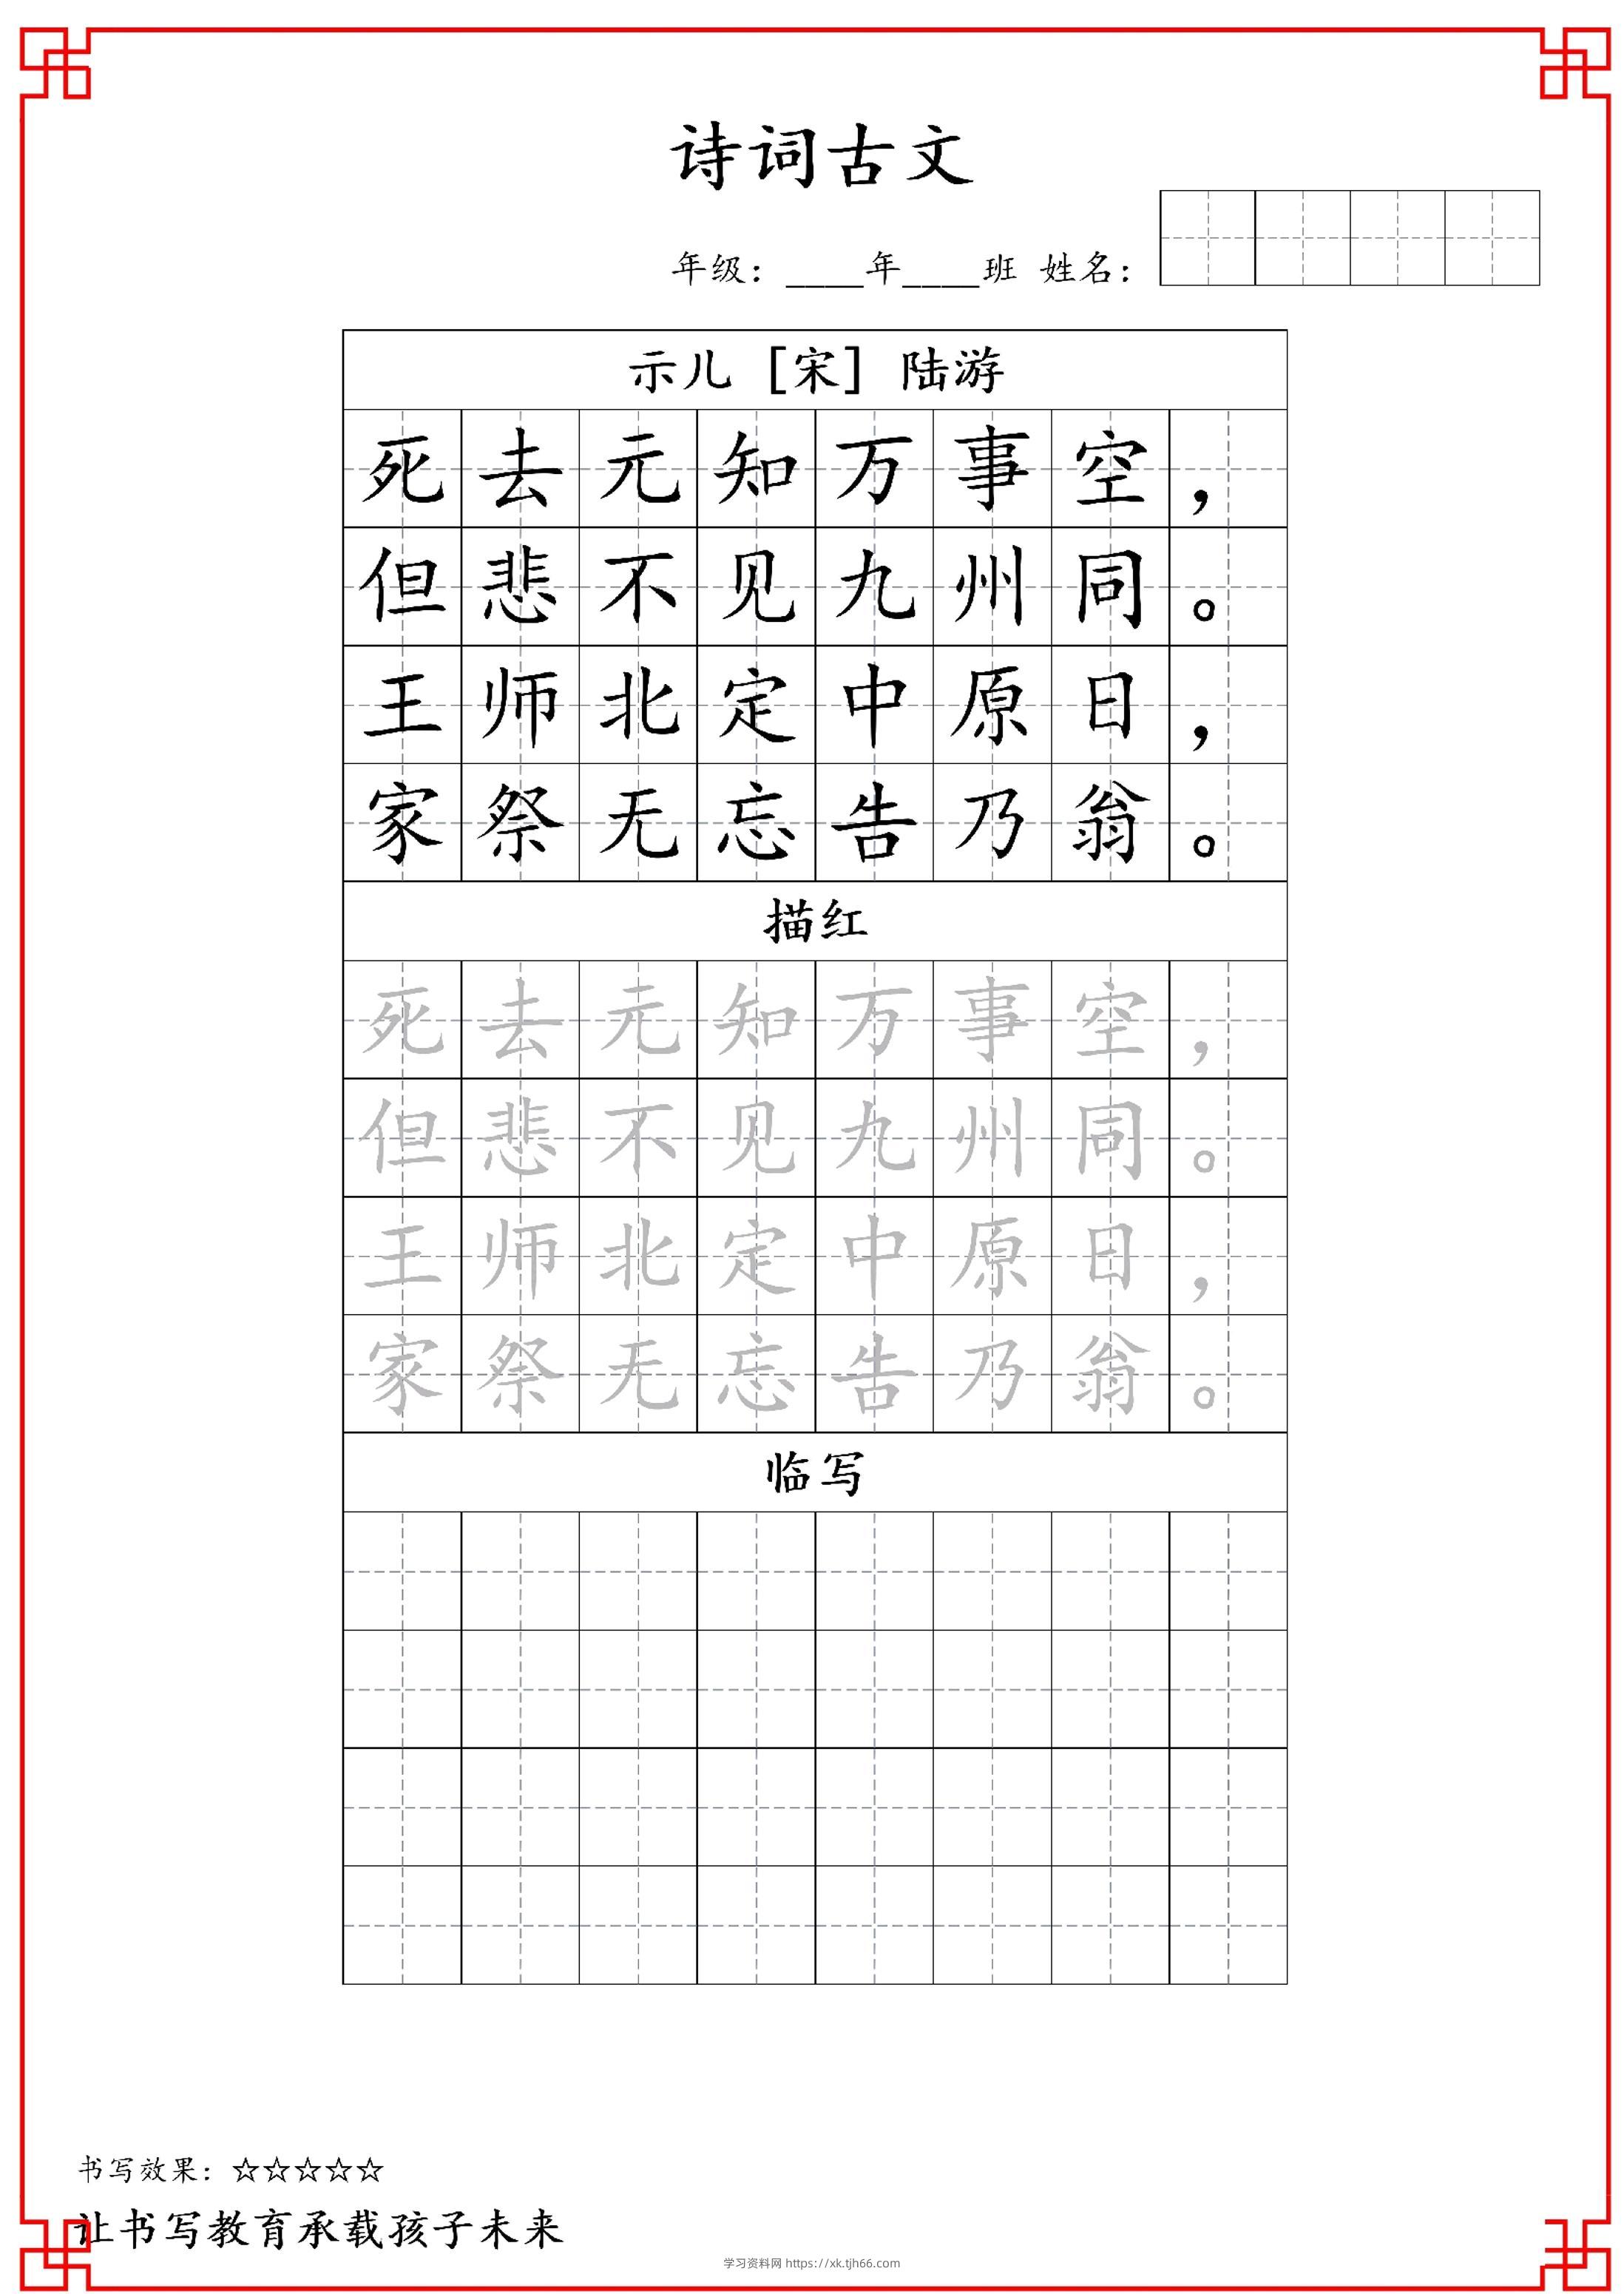 诗词古文
年级：____年____班 姓名：
示儿［宋］陆游
死去元知万事空，
但悲不见九州同。
王师北定中原日，
家祭无忘告乃翁。
描红
死去元知万事空，
但悲不见九州同。
王师北定中原日，
家祭无忘告乃翁。
临写
书写效果：☆☆☆☆☆
让书写教育承载孩子未来
学习资料网 https://xk.tjh66.com